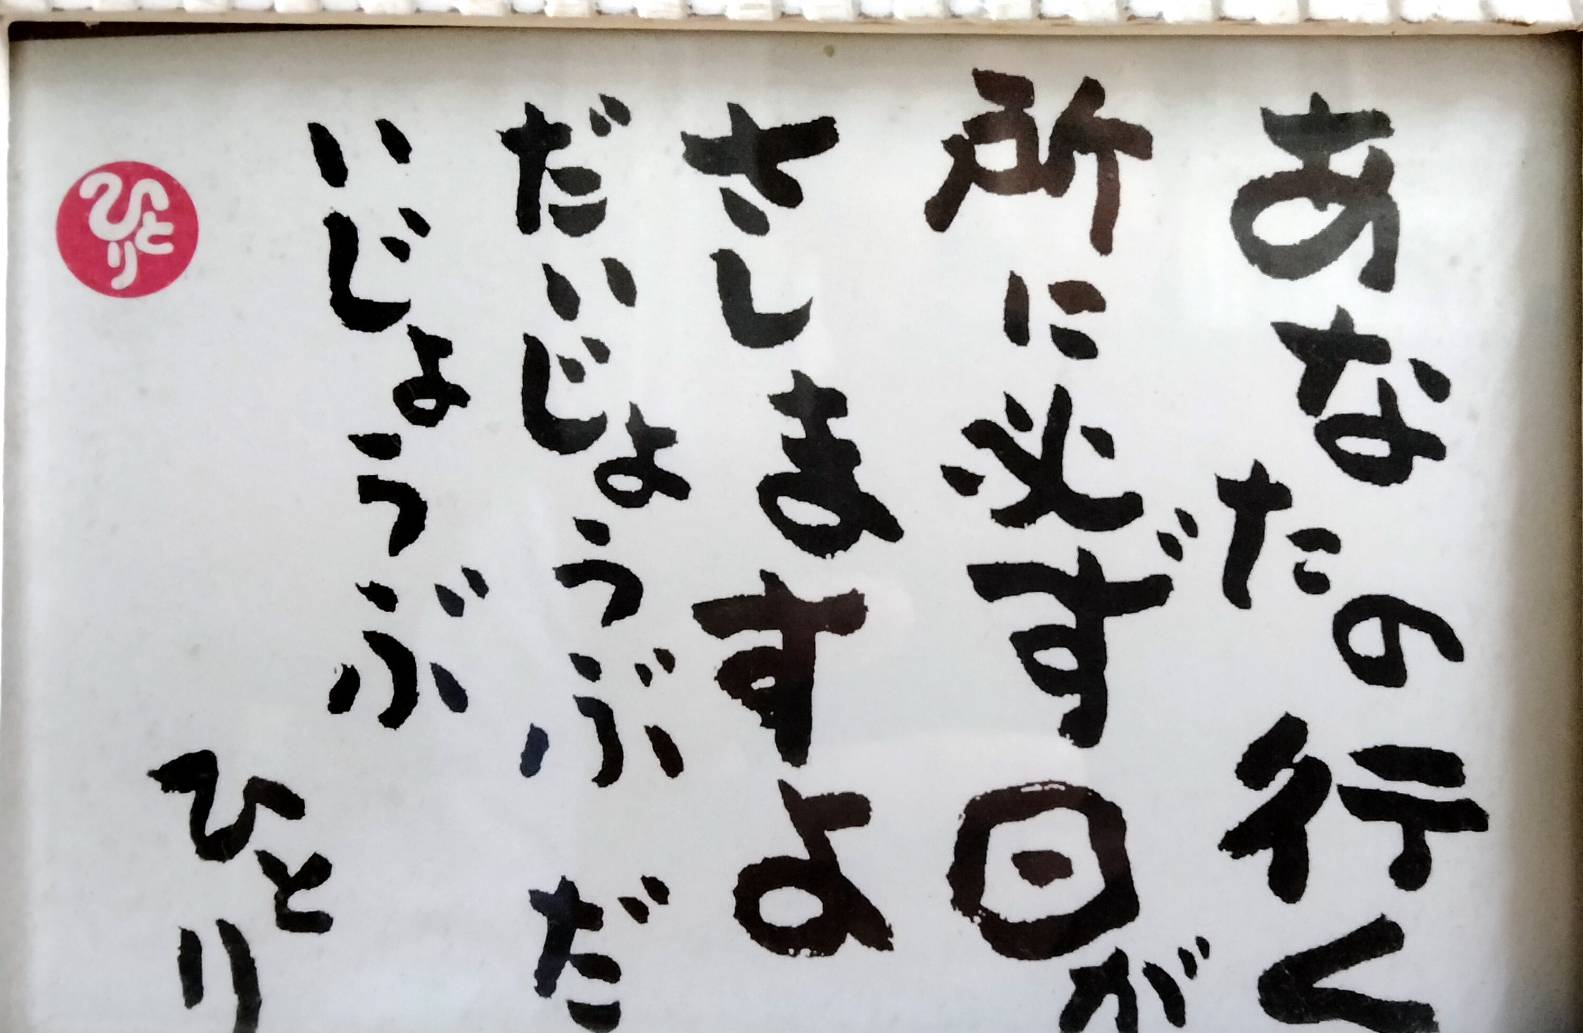 あなたの行く
所に必ず日が
さしますよ
だいじょうぶ だ
いじょうぶ
ひとり
ひとり